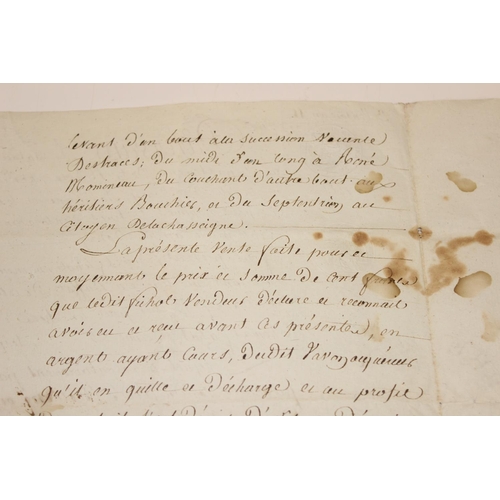 levant d'un bout à la succession vacante
Deshaces; du midi d'un long à René
Momineau, du Couchant d'autre bout aux
héritiers Bouhier, et du Septentrion au
Citoyen Delachasseigne.
La présente Vente faite pour et
moyennant le prix et somme de cent francs
que ledit fuhol Vendeur déclare et reconnait
avoir eu et reçu avant ces présentes, en
argent ayant Cours, dudit acquéreur
qu'il en quitte et décharge et au profit